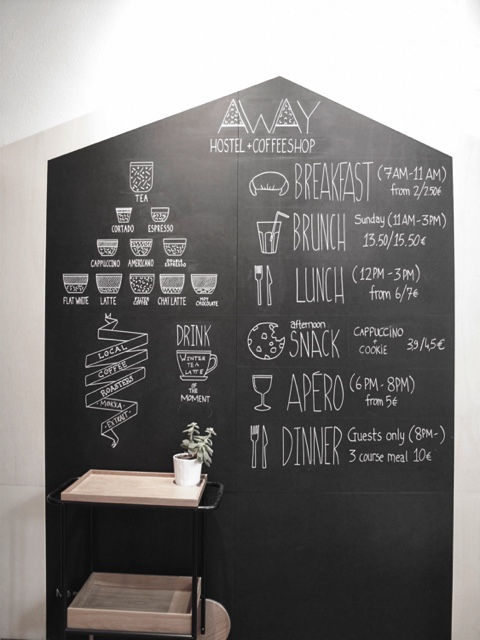 AWAY
HOSTEL + COFFEESHOP
TEA
CORTADO
ESPRESSO
CAPPUCCINO
AMERICANO
DOUBLE ESPRESSO
FLAT WHITE
LATTE
CHAI LATTE
CHOCOLATE
LOCAL
COFFEE
ROASTERS
MOKXA
EXTRAIT
DRINK
WINTER
TEA
LATTE
OF THE
MOMENT
BREAKFAST (7AM-11AM)
from 2/2.50€
BRUNCH Sunday (11AM-3PM)
13.50/15.50€
LUNCH (12PM-3PM)
from 6/7€
afternoon
SNACK CAPPUCCINO
+
COOKIE
3.9/4.5€
APÉRO (6PM-8PM)
from 5€
DINNER Guests only (8PM-)
3 course meal 10€